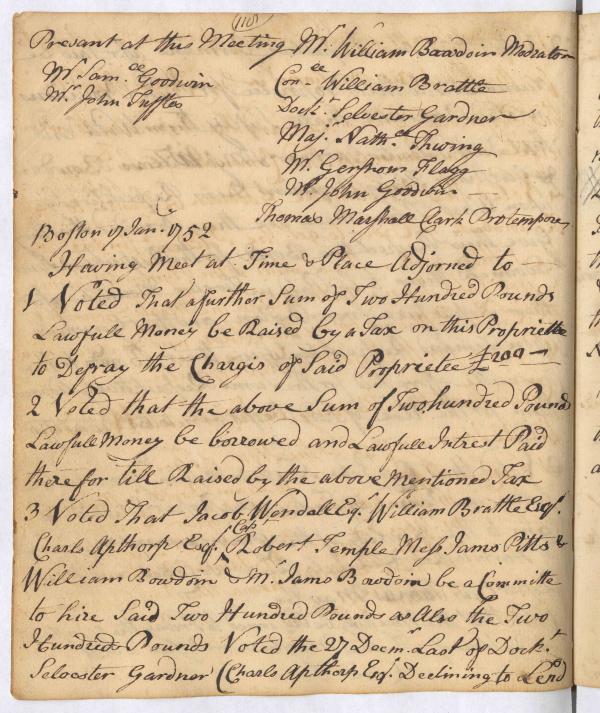 (110)
Present at this Meeting Mr. William Bowdoin Modrator
Mr. Sam.ll Goodwin
Mr. John Tuffles
Con-ee William Brattle
Dockr. Selvester Gardner
Maj.r Nath.ll Thwing
Mr. Gershom Flagg
Mr. John Goodwin
Thomas Marshall Clark Protempore
Boston 17 Jan.y 1752
Having Meet at Time & Place Adjorned to
1 Voted That a further Sum of Two Hundred Pounds
Lawfull Money be Raised by a Tax on this Proprietee
to Defray the Chargis of Said Proprietee £200
2 Voted that the above Sum of Two hundred Pound
Lawfull Money be borrowed and Lawfull Intrest Paid
therefor till Raised by the above Mentioned Tax
3 Voted That Jacob Wendall Esq.r William Brattle Esq.r
Charls Apthorp Esq.r Cap.t Robert Temple Mess. Jams Pitts &
William Bowdoin & Mr. Jams Bowdoin be a Committe
to hire Said Two Hundred Pounds as Also the Two
Hundred Pounds Voted the 27 Decem.r Last of Dock.t
Selvester Gardner (Charls Apthorp Esq.r Declining to Lend